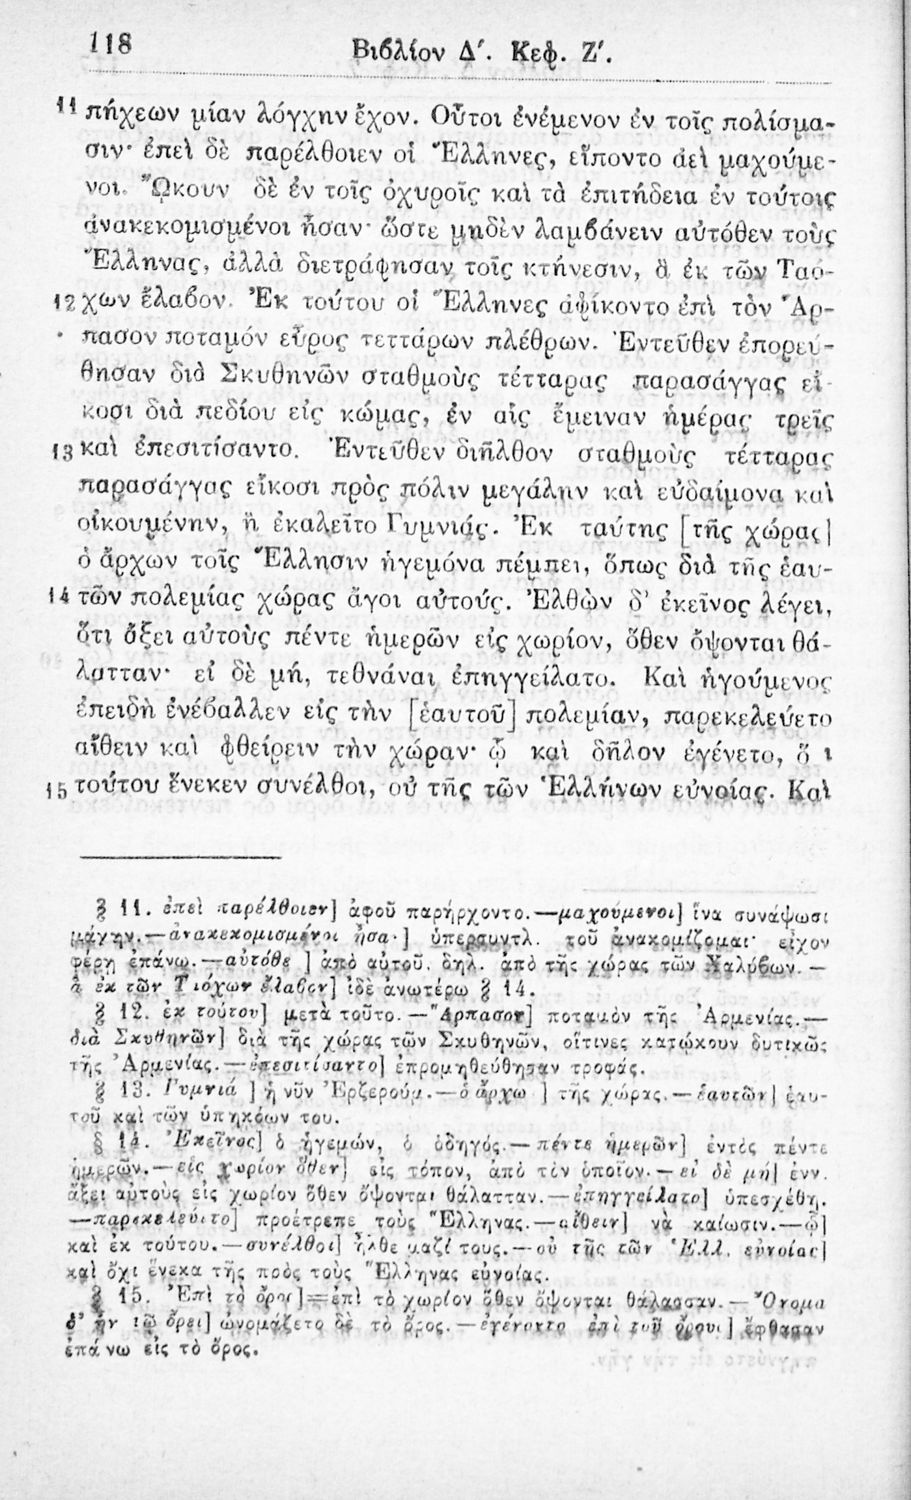 118
Βιβλίον Δ΄. Κεφ. Ζ΄.
11 πήχεων μίαν λόγχην ἔχον. Οὗτοι ἐνέμενον ἐν τοῖς πολίσμα-
σιν· ἐπεὶ δὲ παρέλθοιεν οἱ Ἕλληνες, εἵποντο ἀεὶ μαχούμε-
νοι. ᾬκουν δὲ ἐν τοῖς ὀχυροῖς καὶ τὰ ἐπιτήδεια ἐν τούτοις
ἀνακεκομισμένοι ἦσαν· ὥστε μηδὲν λαμβάνειν αὐτόθεν τοὺς
Ἕλληνας, ἀλλὰ διετράφησαν τοῖς κτήνεσιν, ἃ ἐκ τῶν Ταό-
12 χων ἔλαβον. Ἐκ τούτου οἱ Ἕλληνες ἀφίκοντο ἐπὶ τὸν Ἅρ-
πασον ποταμόν εὖρος τεττάρων πλέθρων. Ἐντεῦθεν ἐπορεύ-
θησαν διὰ Σκυθηνῶν σταθμοὺς τέτταρας παρασάγγας εἴ-
κοσι διὰ πεδίου εἰς κώμας, ἐν αἷς ἔμειναν ἡμέρας τρεῖς
13 καὶ ἐπεσιτίσαντο. Ἐντεῦθεν διῆλθον σταθμοὺς τέτταρας
παρασάγγας εἴκοσι πρὸς πόλιν μεγάλην καὶ εὐδαίμονα καὶ
οἰκουμένην, ἣ ἐκαλεῖτο Γυμνιάς. Ἐκ ταύτης [τῆς χώρας]
ὁ ἄρχων τοῖς Ἕλλησιν ἡγεμόνα πέμπει, ὅπως διὰ τῆς ἑαυ-
14 τῶν πολεμίας χώρας ἄγοι αὐτούς. Ἐλθὼν δ' ἐκεῖνος λέγει,
ὅτι ἄξει αὐτοὺς πέντε ἡμερῶν εἰς χωρίον, ὅθεν ὄψονται θά-
λατταν· εἰ δὲ μή, τεθνάναι ἐπηγγείλατο. Καὶ ἡγούμενος
ἐπειδὴ ἐνέβαλλεν εἰς τὴν [ἑαυτοῦ] πολεμίαν, παρεκελεύετο
αἴθειν καὶ φθείρειν τὴν χώραν· ᾧ καὶ δῆλον ἐγένετο, ὅ ι
15 τούτου ἕνεκεν συνέλθοι, οὐ τῆς τῶν Ἑλλήνων εὐνοίας. Καὶ
§ 11. ἐπεὶ παρέλθοιεν] ἀφοῦ παρήρχοντο.—μαχούμενοι] ἵνα συνάψωσι
μάχην.—ἀνακεκομισμένοι ἦσα·] ὑπερσυντλ. τοῦ ἀνακομίζομαι· εἶχον
φέρῃ ἐπάνω.—αὐτόθε ] ἀπὸ αὐτοῦ. δηλ. ἀπὸ τῆς χώρας τῶν Χαλύβων.—
ἃ ἐκ τῶν Ταόχων ἔλαβον] ἰδὲ ἀνωτέρω § 14.
§ 12. ἐκ τούτου] μετὰ τοῦτο.—Ἅρπασον] ποταμὸν τῆς Ἀρμενίας.—
διὰ Σκυθηνῶν] διὰ τῆς χώρας τῶν Σκυθηνῶν, οἵτινες κατῴκουν δυτικῶς
τῆς Ἀρμενίας.—ἐπεσιτίσαντο] ἐπρομηθεύθησαν τροφάς.
§ 13. Γυμνιά ] ἡ νῦν Ἐρζερούμ.—ὁ ἄρχω ] τῆς χώρας.—ἑαυτῶν] ἑαυ-
τοῦ καὶ τῶν ὑπηκόων του.
§ 14. Ἐκεῖνος] ὁ ἡγεμών, ὁ ὁδηγός.—πέντε ἡμερῶν] ἐντὸς πέντε
ἡμερῶν.—εἰς χωρίον ὅθεν] εἰς τόπον, ἀπὸ τὸν ὁποῖον.—εἰ δὲ μή] ἐνν.
ἄξει αὐτοὺς εἰς χωρίον ὅθεν ὄψονται θάλατταν.—ἐπηγγείλατο] ὑπεσχέθη.
—παρεκελεύετο] προέτρεπε τοὺς Ἕλληνας.—αἴθειν] νὰ καίωσιν.—ᾧ]
καὶ ἐκ τούτου.—συνέλθοι] ἦλθε μαζί τους.—οὐ τῆς τῶν Ἑλλ. εὐνοίας]
καὶ ὄχι ἕνεκα τῆς πρὸς τοὺς Ἕλληνας εὐνοίας.
§ 15. Ἐπὶ τὸ ὄρος]=ἐπὶ τὸ χωρίον ὅθεν ὄψονται θάλασσαν.—Ὄνομα
δ' ἦν τῷ ὄρει] ὠνομάζετο δὲ τὸ ὄρος.—ἐγένοντο ἐπὶ τοῦ ὄρους] ἔφθασαν
ἐπάνω εἰς τὸ ὄρος.